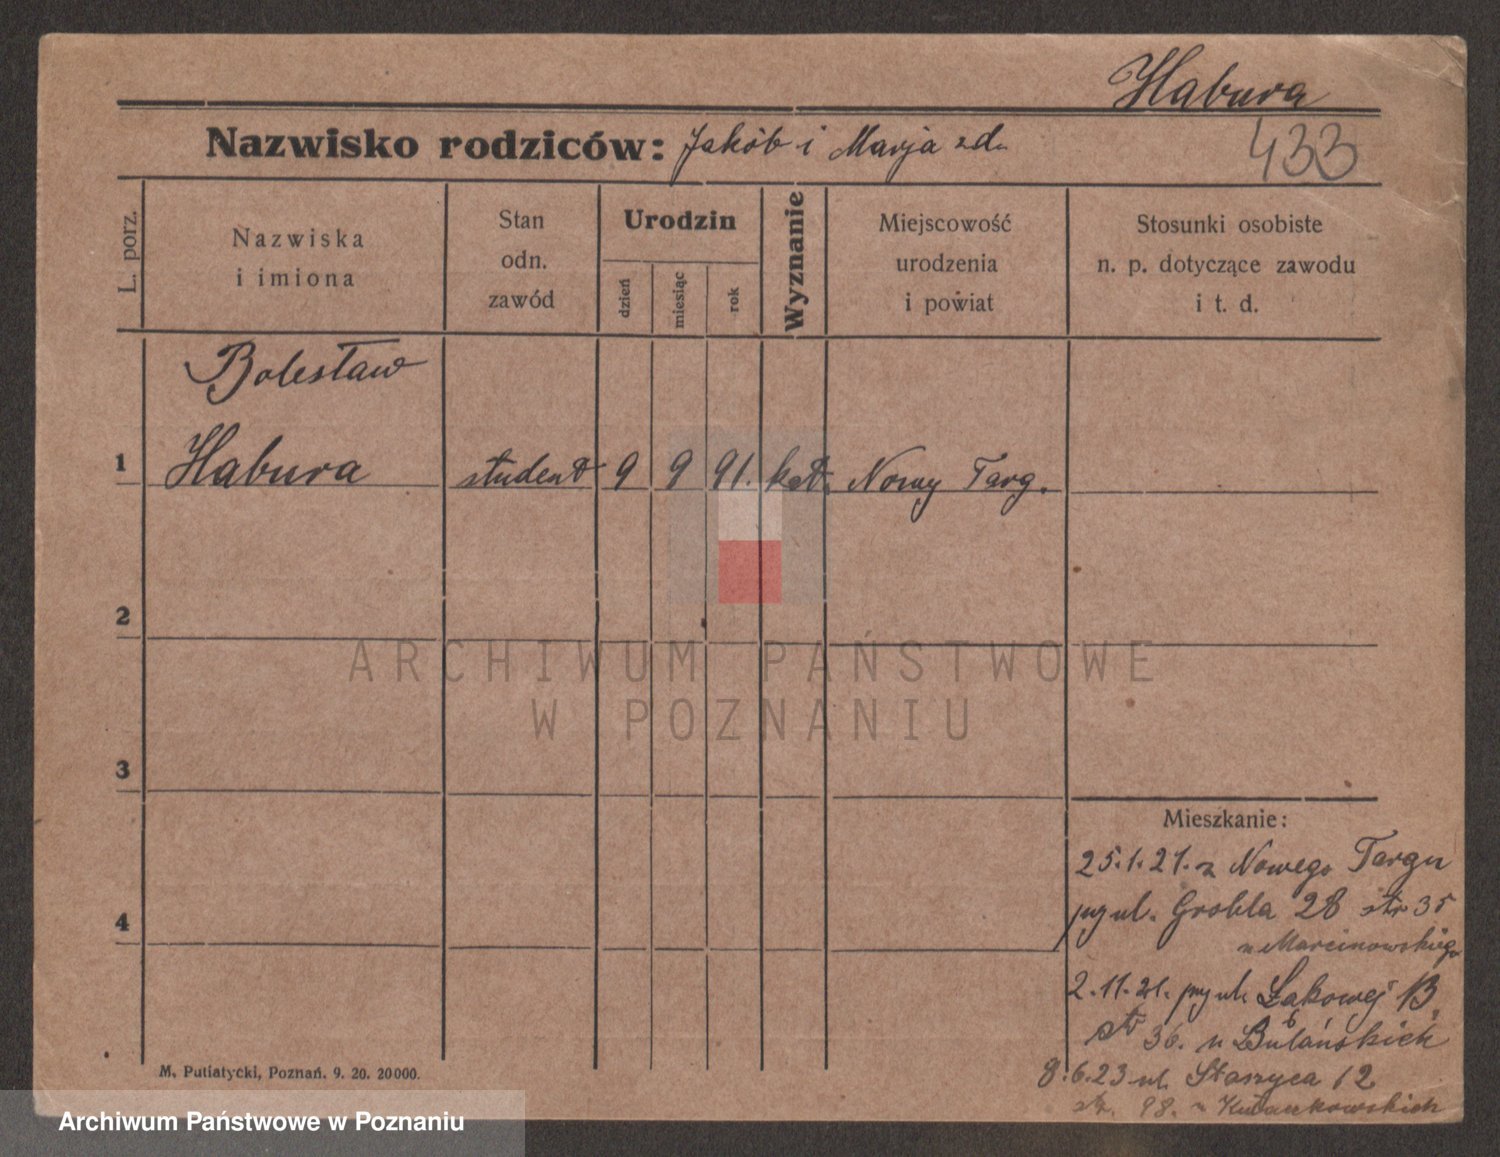 Habura
433
Nazwisko rodziców: Jakób i Marja zd.
L. porz.
Nazwiska
i imiona
Stan
odn.
zawód
Urodzin
dzień
miesiąc
rok
Wyznanie
Miejscowość
urodzenia
i powiat
Stosunki osobiste
n. p. dotyczące zawodu
i t. d.
Bolesław
1 Habura student 9 9 91. kat. Nowy Targ.
2
3
4
ARCHIWUM PAŃSTWOWE
W POZNANIU
Mieszkanie:
25.1.21. z Nowego Targu
przy ul. Grobla 28 str 35
u Marcinowskiego
2.11.21. przy ul. Łąkowej
str 36. u Bułańskich
8.6.23 ul. Staszyca 12
str. 98. u
M. Putiatycki, Poznań. 9. 20. 20000.
Archiwum Państwowe w Poznaniu